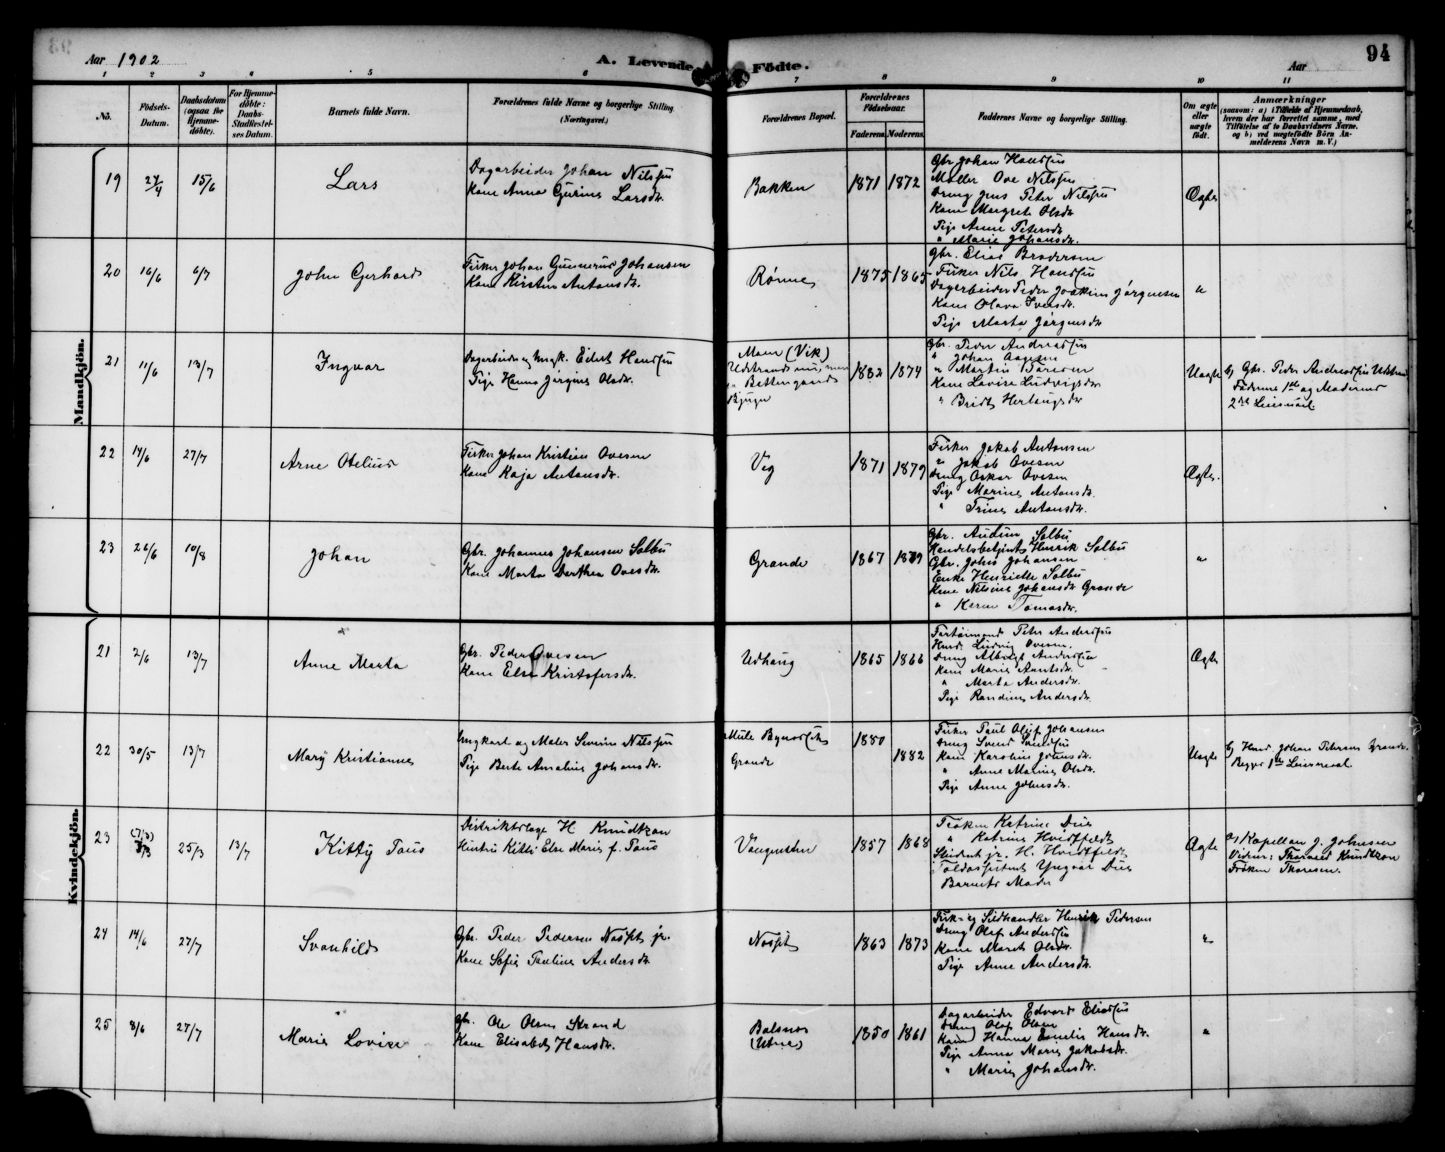 Aar 1902
A. Levende Fødte.
Aar
94
1 2 3 4 5 6 7 8 9 10 11
No.
Fødsels-
Datum.
Daabsdatum
(ogsaa for
Hjemme-
døbte).
For Hjemme-
døbte:
Daabs-
Stadfæstel-
ses Datum.
Barnets fulde Navn.
Forældrenes fulde Navne og borgerlige Stilling
(Næringsvei.)
Forældrenes Bopæl.
Forældrenes
Fødselsaar.
Faderens. Moderens.
Faddernes Navne og borgerlige Stilling.
Om ægte
eller
uægte
født.
Anmærkninger
(saasom: a) i Tilfælde af Hjemmedaab,
hvem der har forrettet samme, med
Tilføielse af to Daabsvidners Navne,
og b) ved uegtefødte Børn An-
melderens Navn m. V.)
Mandkjön.
19 24/4 15/6
Lars
Dagarbeider Johan Nilssen
Kone Anna Gurine Larsdr.
Bakken
1871 1872
Gbr Johan Hanssen
Møller Ove Nilssen
Dreng Jens Peter Nilssen
Kone Margrete Olsdr
Pige Anne Petersdr
" Marie Johansdr.
Ægte
20 16/6 6/7
John Gerhard
Fisker Johan Gunnerius Johansen
Kone Kirstine Antonsdr.
Rønne
1875 1865
Gbr. Elias Brodersen
Fisker Nils Hanssen
Dagarbeider Peder Joakim Jørgensen
Kone Olava Iversdr.
Pige Marta Jørgensdr
"
21 11/6 13/7
Ingvar
Dagarbeider og Ungk. Edert Hanssen
Pige Hanna Jørgine Olsdr.
(Vik)
Bjugn
1882 1874
Gbr. Peder Andreassen
" Johan Aagesen
" Martin
Kone Lovise Ludvigsdr
" Bridt Herlaugsdr
Uægte
b) Gbr. Peder Andreassen Udstrand
Faderens 1ste og Moderens
2det Leiermaal.
22 14/6 27/7
Arne Otelius
Fisker Johan Kristian Ovesen
Kone Kaja Antonsdr.
Veg
1871 1879
Fisker Jakob Antonsen
" Jakob Ovesen
Dreng Oskar Ovesen
Pige Marine Antonsdr.
" Trine Antonsdr.
Ægte.
23 26/6 10/8
Johan
Gbr. Johannes Johansen Solbu
Kone Marta Dorthea Ovesdr.
Grande
1867 1879
Gbr. Audun Solbu
Handelsbetjent Henrik Solbu
Gbr. Johs Johansen
Enke Henriette Solbu
Kone Nilsine Johansdr Grande
" Karen Tomasdr.
"
Kvindekjön.
21 2/6 13/7
Anne Marta
Gbr. Peder Ovesen
Kone Else Kristofersdr.
Udhaug
1865 1866
Peter Anderssen
Husd. Ludvig Ovesen.
Dreng Anderssen
Kone Marie
" Marta Andersdr.
Pige Randine Andersdr.
Ægte
22 30/5 13/7
Mary Kristianne
Ungkarl og Maler Severin Nilssen
Pige Berte Amalie Johansdr.
Grande
1880
1882
Fisker Paul Oluf Johansen
Dreng Svend
Kone Karoline Johnsdr.
" Anne Marie Olsdr.
Pige Anne Johnsdr.
Uægte
b) Husd. Johan Petersen Grande.
Begges 1ste Leiermaal.
23 25/3 13/7
Kitty Taus
Distriktslæge H Knudtzon
Hustru Kitti Else Marie f. Taus
1857 1868
Frøken Katrine Due
" Katrine Hvidtfeldt
Student jr. H. Hvidtfeldt
Toldassistent Yngvar Due
Barnets Moder
Ægte
a) Kapellan J. Johnsen
Vidner: Thorvald Knudtzon
Frøken Thoresen.
24 14/6 27/7
Svanhild
Gbr. Peder Pedersen jr.
Kone Sofie Pauline Andersdr.
1863 1873
Fisk- og Sildhandler Henrik Pedersen
Dreng Olaf Anderssen
Kone Marit Olsdr.
Pige Anne Andersdr.
"
25 8/6 27/7
Marie Lovise
Gbr. Ole Olsen Strand
Kone Elisabeth Hansdr.
Balsnes
(Utne)
1850 1861
Dagarbeider Edvard Eliassen
Dreng Olaf Olsen
Kone Hanna Emelie Hansdr.
Pige Anna Marie Jakobsdr.
" Marie Johansdr.
"